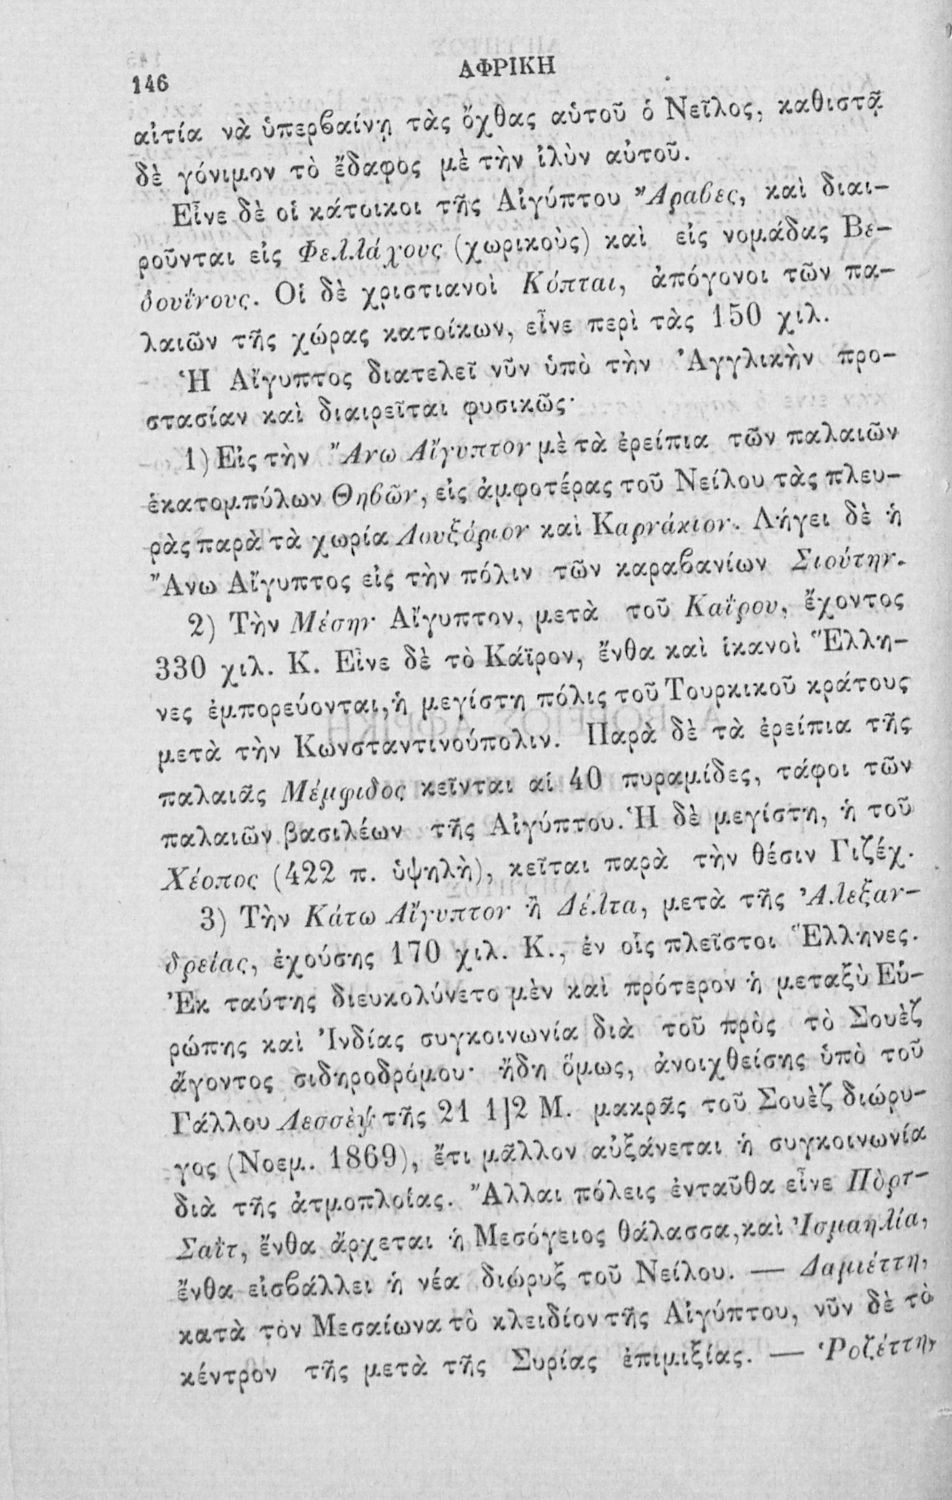 146
ΑΦΡΙΚΗ
αἰτία νὰ ὑπερβαίνῃ τὰς ὄχθας αὑτοῦ ὁ Νεῖλος, καθιστᾷ
δὲ γόνιμον τὸ ἔδαφος μὲ τὴν ἰλὺν αὑτοῦ.
Εἶνε δὲ οἱ κάτοικοι τῆς Αἰγύπτου Ἄραβες, καὶ διαι-
ροῦνται εἰς Φελλάχους (χωρικοὺς) καὶ εἰς νομάδας Βε-
δουΐνους. Οἱ δὲ χριστιανοὶ Κόπται, ἀπόγονοι τῶν πα-
λαιῶν τῆς χώρας κατοίκων, εἶνε περὶ τὰς 150 χιλ.
Ἡ Αἴγυπτος διατελεῖ νῦν ὑπὸ τὴν Ἀγγλικὴν προ-
στασίαν καὶ διαιρεῖται φυσικῶς·
1) Εἰς τὴν Ἄνω Αἴγυπτον μὲ τὰ ἐρείπια τῶν παλαιῶν
ἑκατομπύλων Θηβῶν, εἰς ἀμφοτέρας τοῦ Νείλου τὰς πλευ-
ρὰς παρὰ τὰ χωρία Λουξόριον καὶ Καρνάκιον. Λήγει δὲ ἡ
Ἄνω Αἴγυπτος εἰς τὴν πόλιν τῶν καραβανίων Σιούτην.
2) Τὴν Μέσην Αἴγυπτον, μετὰ τοῦ Καΐρου, ἔχοντος
330 χιλ. Κ. Εἶνε δὲ τὸ Κάϊρον, ἔνθα καὶ ἱκανοὶ Ἕλλη-
νες ἐμπορεύονται, ἡ μεγίστη πόλις τοῦ Τουρκικοῦ κράτους
μετὰ τὴν Κωνσταντινούπολιν. Παρὰ δὲ τὰ ἐρείπια τῆς
παλαιᾶς Μέμφιδος κεῖνται αἱ 40 πυραμίδες, τάφοι τῶν
παλαιῶν βασιλέων τῆς Αἰγύπτου. Ἡ δὲ μεγίστη, ἡ τοῦ
Χέοπος (422 π. ὑψηλὴ), κεῖται παρὰ τὴν θέσιν Γιζέχ.
3) Τὴν Κάτω Αἴγυπτον ἢ Δέλτα, μετὰ τῆς Ἀλεξαν-
δρείας, ἐχούσης 170 χιλ. Κ., ἐν οἷς πλεῖστοι Ἕλληνες.
Ἐκ ταύτης διευκολύνετο μὲν καὶ πρότερον ἡ μεταξὺ Εὐ-
ρώπης καὶ Ἰνδίας συγκοινωνία διὰ τοῦ πρὸς τὸ Σουὲζ
ἄγοντος σιδηροδρόμου· ἤδη ὅμως, ἀνοιχθείσης ὑπὸ τοῦ
Γάλλου Λεσσὲψ τῆς 21 1|2 Μ. μακρᾶς τοῦ Σουὲζ διώρυ-
γος (Νοεμ. 1869), ἔτι μᾶλλον αὐξάνεται ἡ συγκοινωνία
διὰ τῆς ἀτμοπλοίας. Ἄλλαι πόλεις ἐνταῦθα εἶνε Πὸρτ-
Σαΐτ, ἔνθα ἄρχεται ἡ Μεσόγειος θάλασσα, καὶ Ἰσμαηλία,
ἔνθα εἰσβάλλει ἡ νέα διώρυξ τοῦ Νείλου. — Δαμιέττη,
κατὰ τὸν Μεσαίωνα τὸ κλειδίον τῆς Αἰγύπτου, νῦν δὲ τὸ
κέντρον τῆς μετὰ τῆς Συρίας ἐπιμιξίας. — Ῥοζέττη,